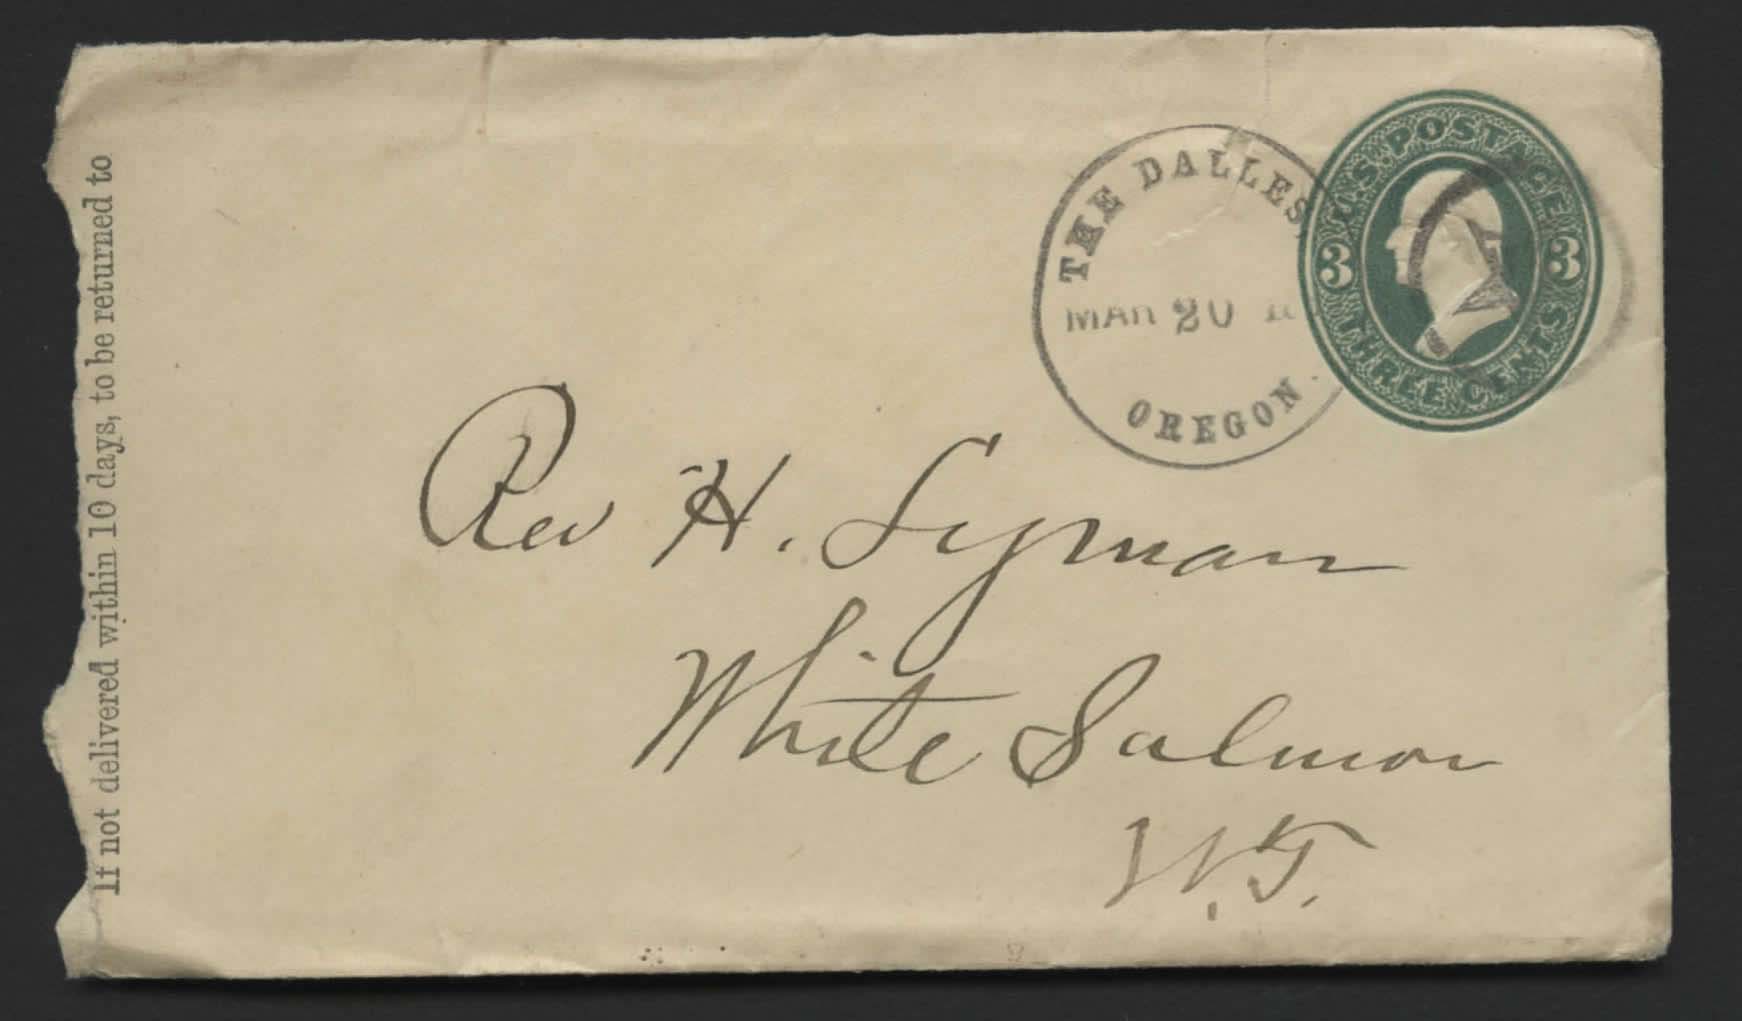 If not delivered within 10 days, to be returned to
THE DALLES,
MAR 20
OREGON.
U.S. POSTAGE
3 3
THREE CENTS
Rev H. Lyman
White Salmon
W.T.